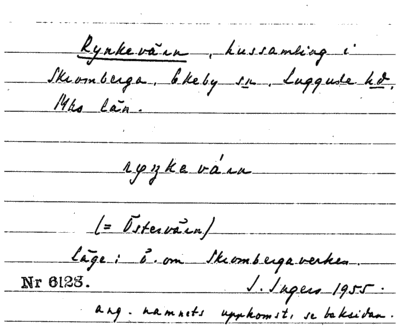 Rynkevärn, hussamling i
Skromberga, Ekeby sn, Luggude hd,
Mhs län.
(= Östervärn)
Läge: ö. om Skrombergaverken.
Nr 6128. I. Ingers 1955.
ang. namnets uppkomst, se baksidan.